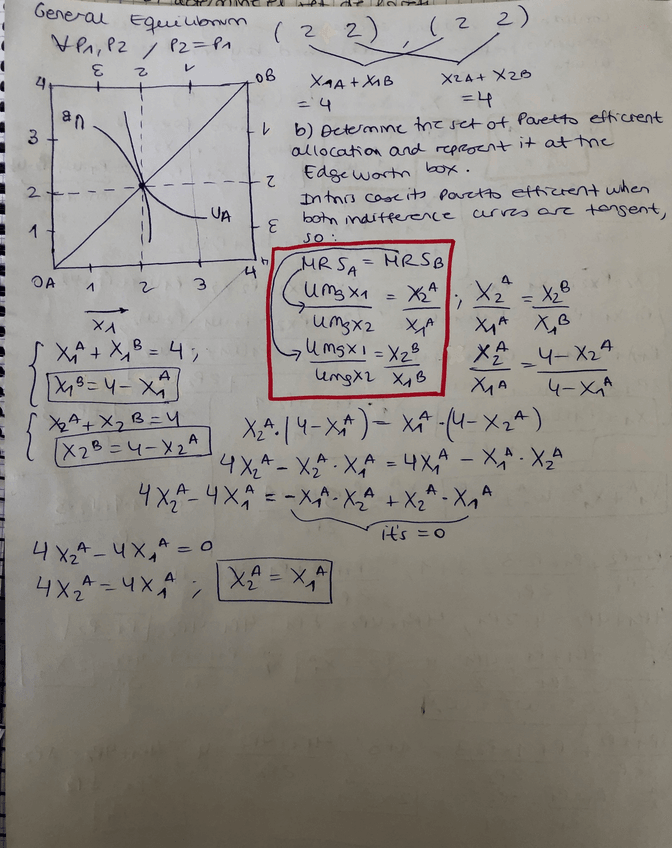 General Equilibrium ( 2 2 ) , ( 2 2 )
∀P1, P2 / P2=P1
X1A + X1B = 4
X2A + X2B = 4
3 2 1 OB
4 3 2 1
1 2 3 4
UB
UA
OA 1 2 3 4
X1
b) Determine the set of Paretto efficient
allocation and represent it at the
Edgeworth box.
In this case its paretto efficient when
both indifference curves are tangent,
so:
MRSA = MRSB
Umg x1 / Umg x2 = X2^A / X1^A ; X2^A / X1^A = X2^B / X1^B
Umg x1 / Umg x2 = X2^B / X1^B
X2^A / X1^A = 4-X2^A / 4-X1^A
X1^A + X1^B = 4 ;
X1^B = 4 - X1^A
X2^A + X2^B = 4
X2^B = 4 - X2^A
X2^A · (4 - X1^A) = X1^A · (4 - X2^A)
4X2^A - X2^A · X1^A = 4X1^A - X1^A · X2^A
4X2^A - 4X1^A = -X1^A · X2^A + X2^A · X1^A
it's = 0
4X2^A - 4X1^A = 0
4X2^A = 4X1^A ; X2^A = X1^A